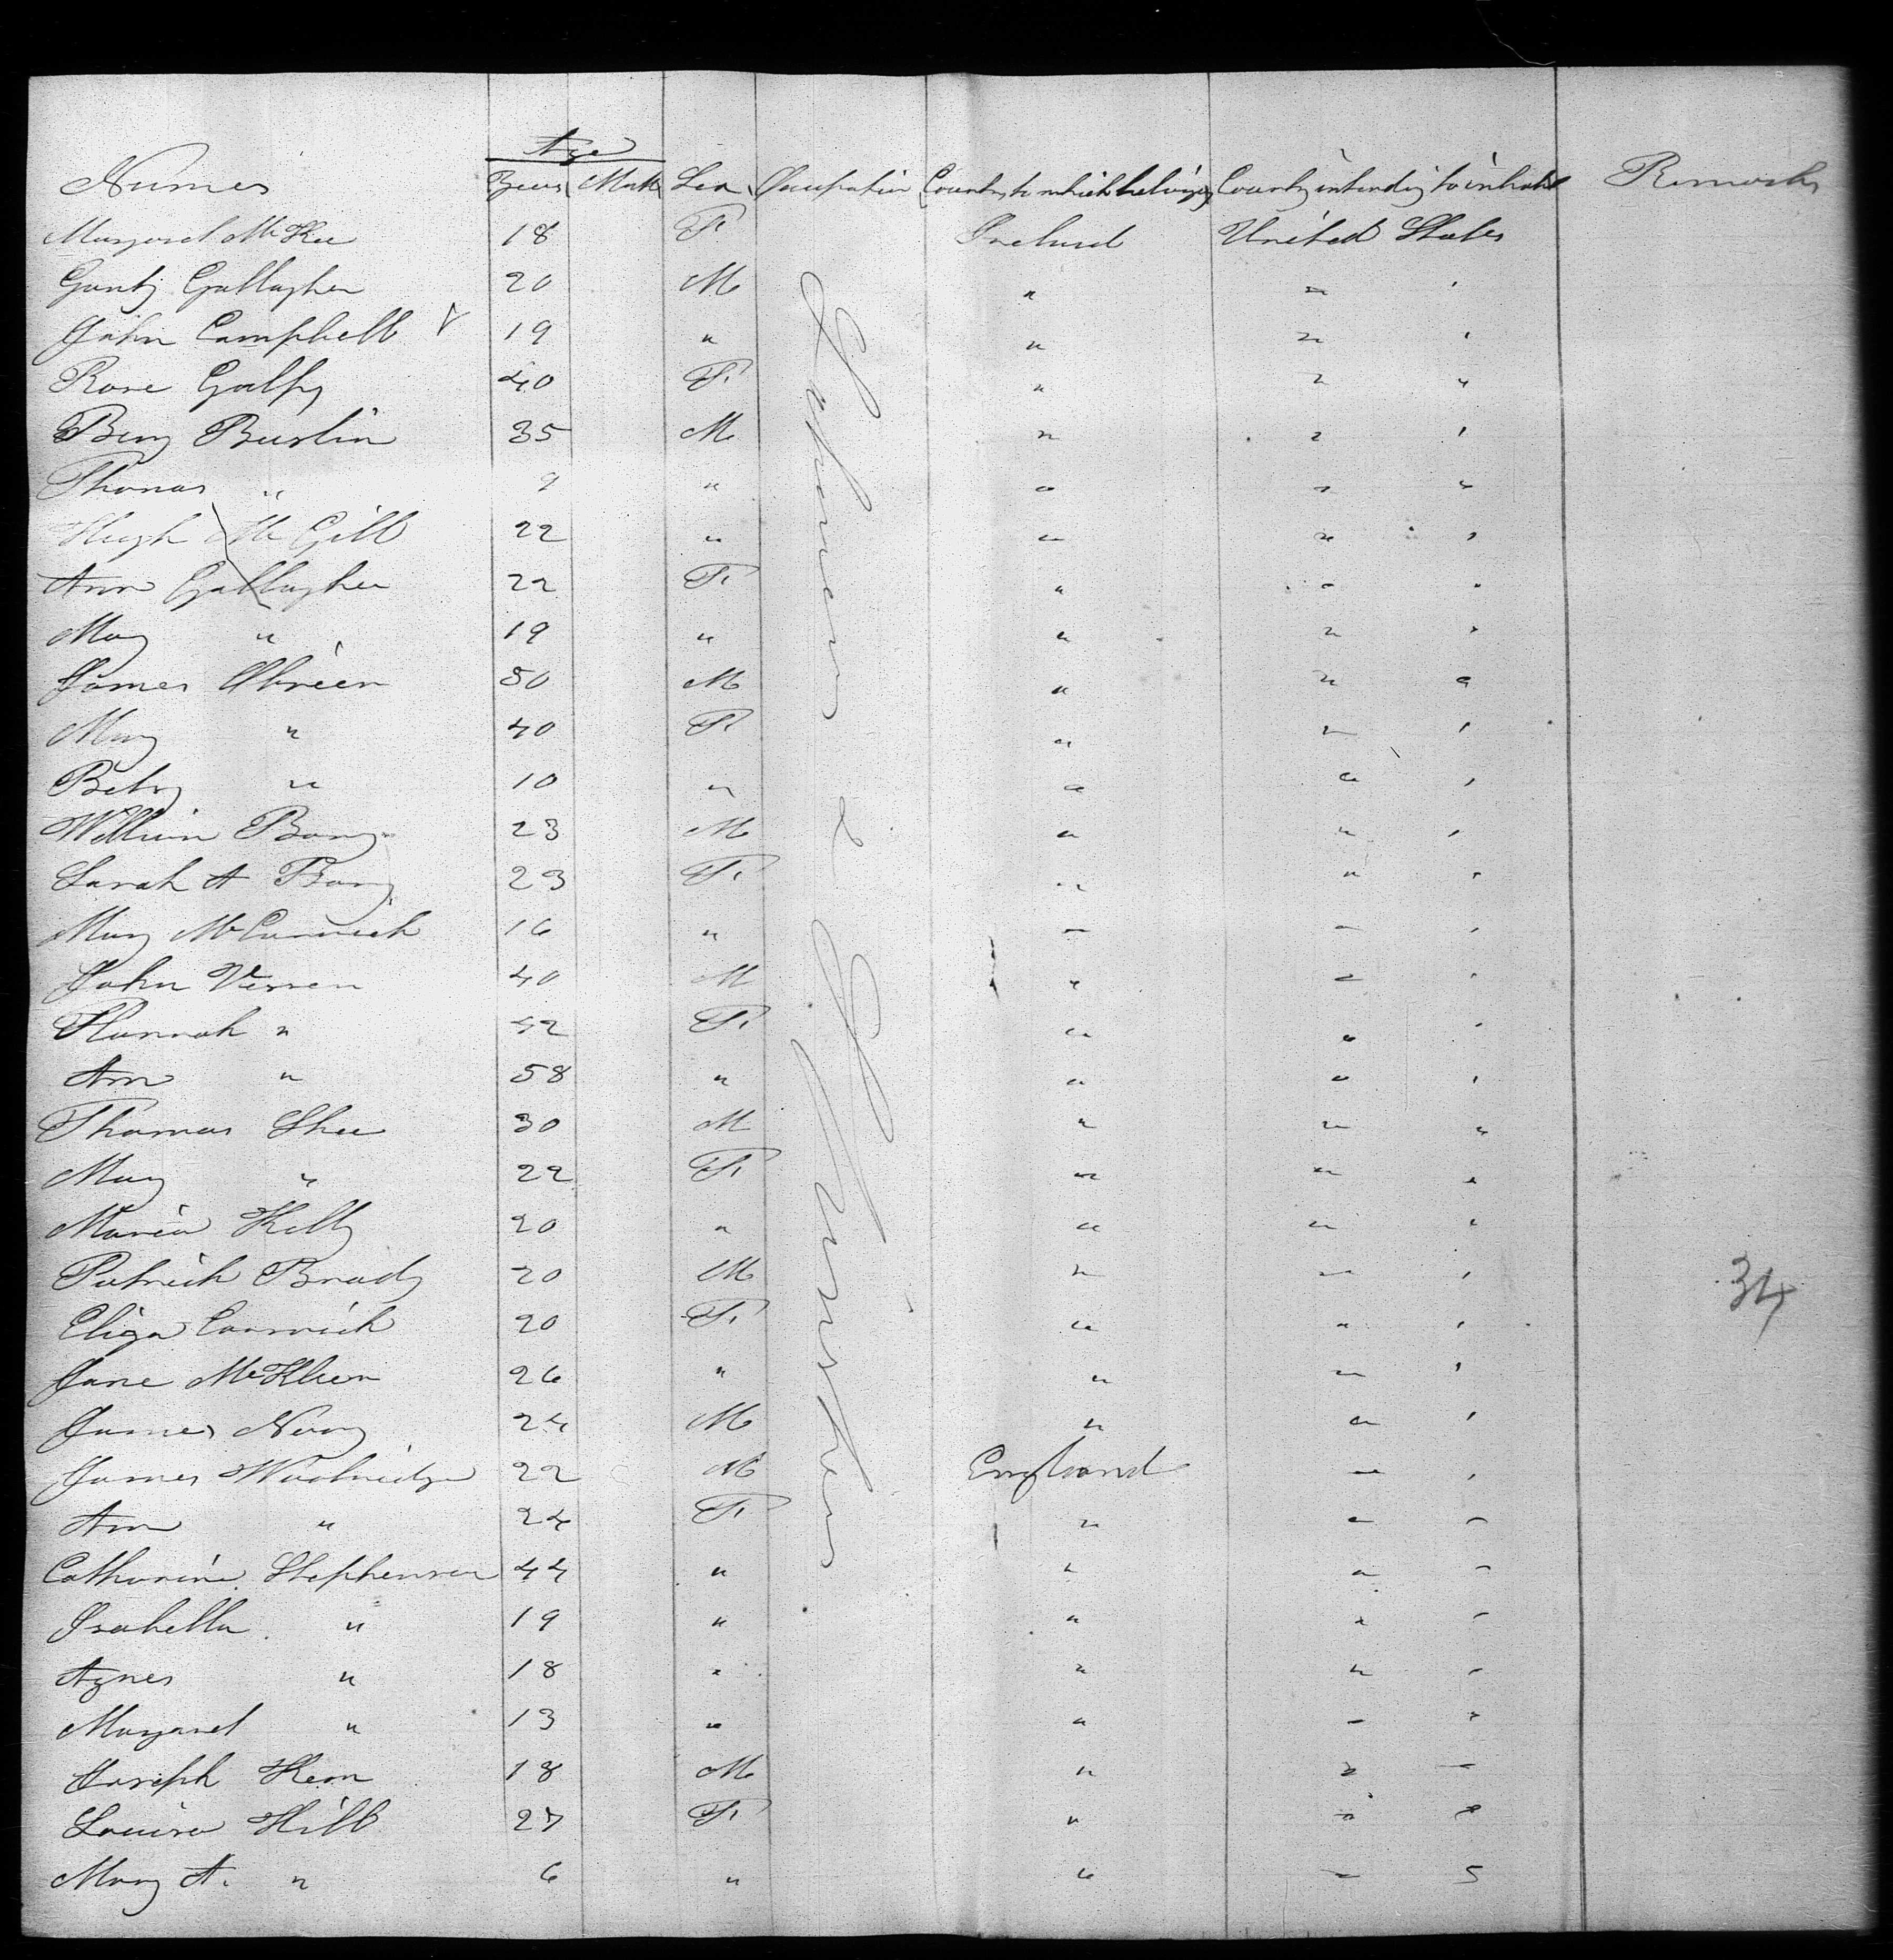 Age
Names Years Mnth Sex Occupation Country to which belongs Country intending to inhabit Remarks
Margaret McKee 18 F. Ireland United States
Gallagher 20 M " " "
John Campbell 19 " " " "
Rose 40 F. " " "
Benj 35 M " " "
Thomas " 9 " " " "
Hugh McGill 22 " " " "
Ann Gallagher 22 F. " " "
Mary " 19 " " " "
James Obrien 50 M " " "
Mary " 40 F. " " "
Betsy " 10 " " " "
William 23 M " " "
Sarah A 23 F. " " "
Mary McCormick 16 " " " "
John 40 M " " "
Hannah " 42 F. " " "
Ann " 58 " " " "
Thomas Shee 30 M " " "
Mary " 22 F. " " "
Maria Kelly 20 " " " "
Patrick Brady 20 M " " "
Eliza 20 F. " " "
Jane 26 " " " "
James 24 M " " "
James Woolridge 22 M England " "
Ann " 24 F. " " "
Catharine Stephenson 44 " " " "
Isabella " 19 " " " "
Agnes " 18 " " " "
Margaret " 13 " " " "
Joseph 18 M " " "
Louisa Hill 27 F. " " "
Mary A. " 6 " " " "
Laborers & Spinsters
34